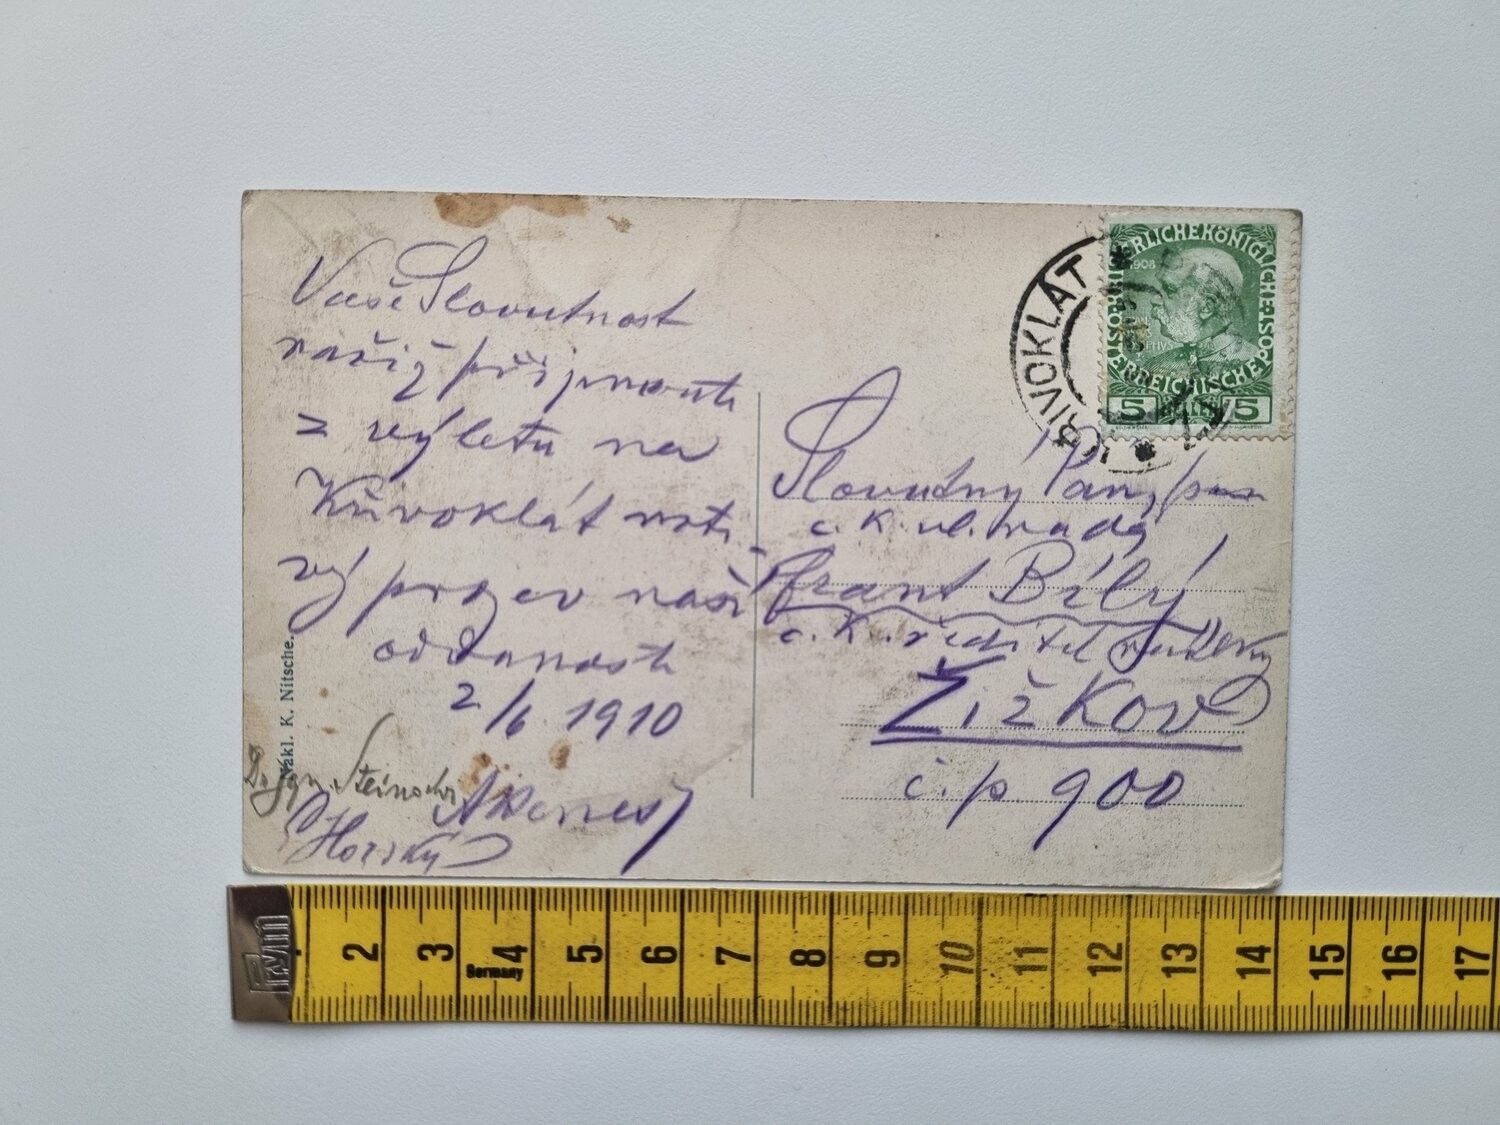 Vaše Slovutnost
račiž přijmouti
z výletu na
Křivoklát ucti-
vý projev naší
oddanosti
2/6 1910
Dr. Ign. Steinocher
Horský
Nákl. K. Nitsche.
KŘIVOKLÁT
RLICHEKÖNIGLICHEÖSTERREICHISCHEPOST
1908
5 5
Slovutný Pán, pan
c. k. vl. rada
Frant Bílý
c. k. ředitel
Žižkov
č. p. 900
prym
Germany
2 3 4 5 6 7 8 9 10 11 12 13 14 15 16 17